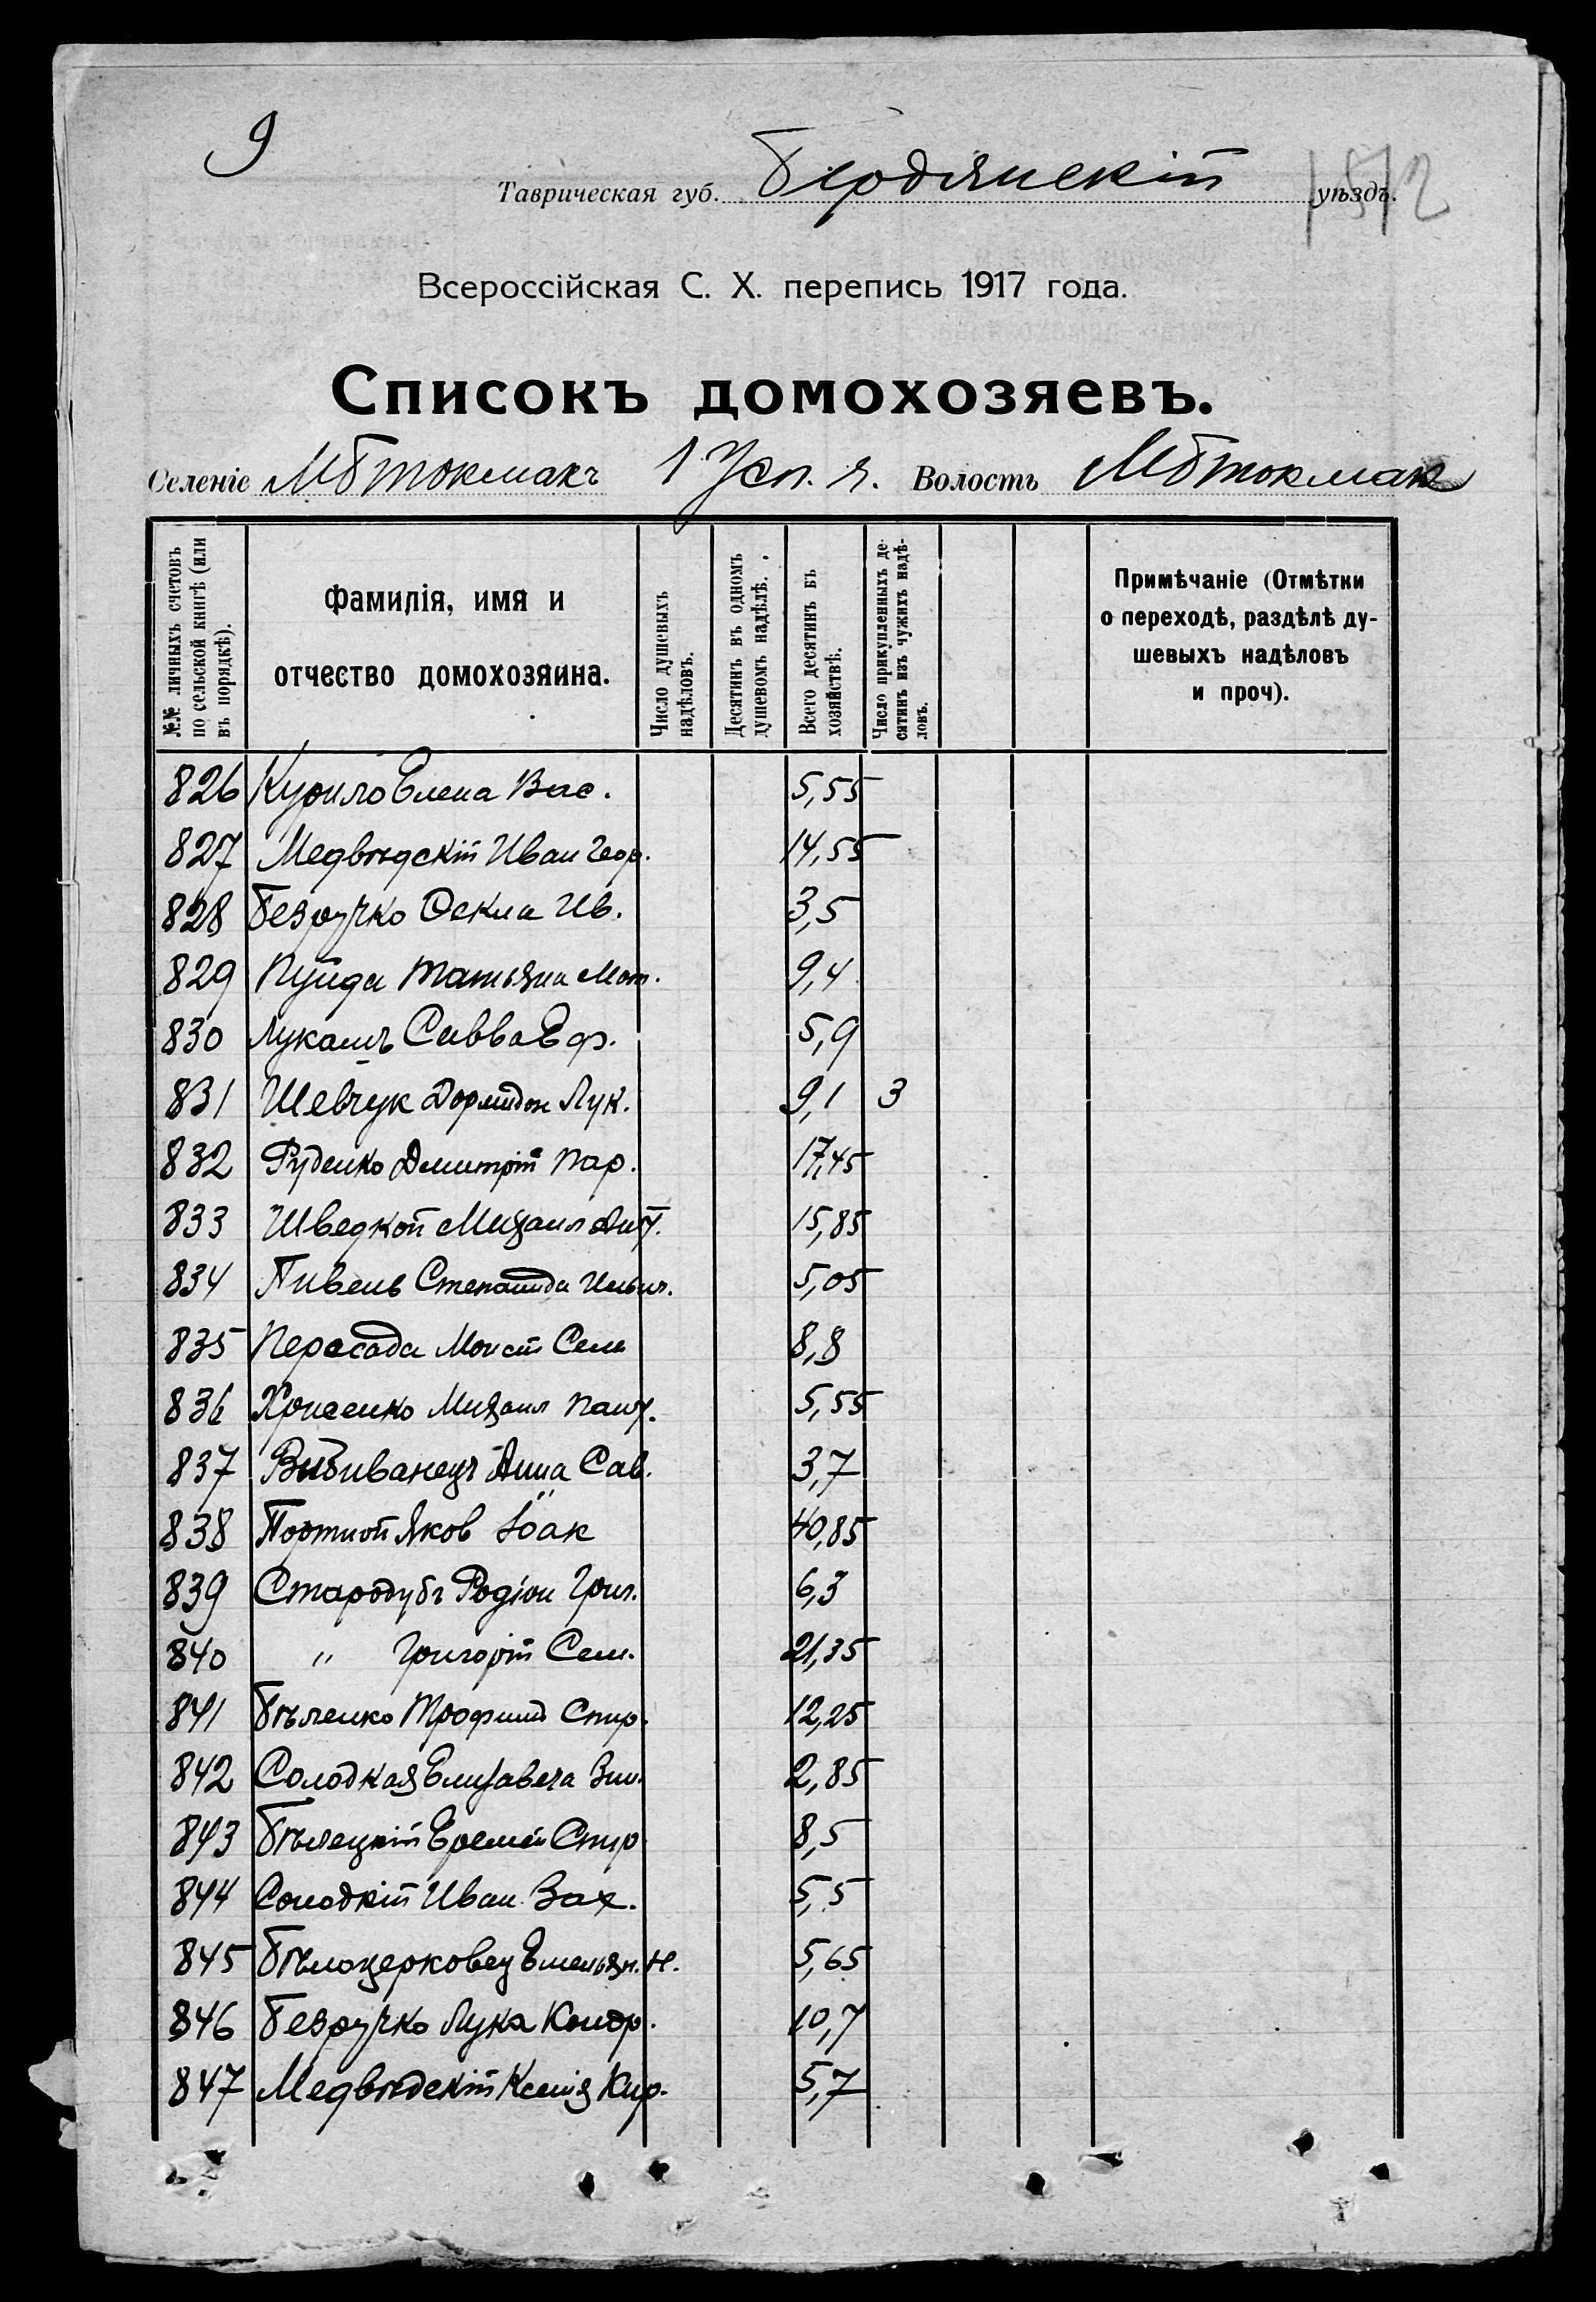 9
Таврическая губ. Бердянскій уѣздъ.
Всероссійская С. Х. перепись 1917 года.
Списокъ домохозяевъ.
Селеніе Мб Токмакъ 1 Усп. Волость Мб Токмак
№№ личныхъ счетовъ по сельской книгѣ (или въ порядкѣ).
Фамилія, имя и отчество домохозяина.
Число душевыхъ надѣловъ.
Десятинъ въ одномъ душевомъ надѣлѣ.
Всего десятинъ въ хозяйствѣ.
Число прикупленныхъ десятинъ изъ чужихъ надѣловъ.
Примѣчаніе (Отмѣтки о переходѣ, раздѣлѣ душевыхъ надѣловъ и проч).
826 Курило Елена Вас. 5,55
827 Медвѣдскій Иван Геор. 14,55
828 Безручко Ѳекла Ив. 3,5
829 Татьяна Мат. 9,4
830 Лукашъ Савва Еф. 5,9
831 Шевчук Дормидон Лук. 9,1 3
832 Руденко Дмитрій Пар. 17,45
833 Шведкой Михаил 15,85
834 Пивень Степанида 5,05
835 Пересада Моисей Сем 8,8
836 Михаил 5,55
837 Вибиванецъ Анна Сав. 3,7
838 Портной Яков 40,85
839 Стародубъ Родіон Григ. 6,3
840 " Григорій Сем. 21,35
841 Бѣленко Трофим Спир. 12,25
842 Солодкая Елизавета 2,85
843 Бѣлецкій Еремей Спир 8,5
844 Солодкій Иван Зах. 5,5
845 Бѣлоцерковец Емельян. Н. 5,65
846 Безручко Лука Кондр. 10,7
847 Медвѣдскій Ксенія Кир. 5,7